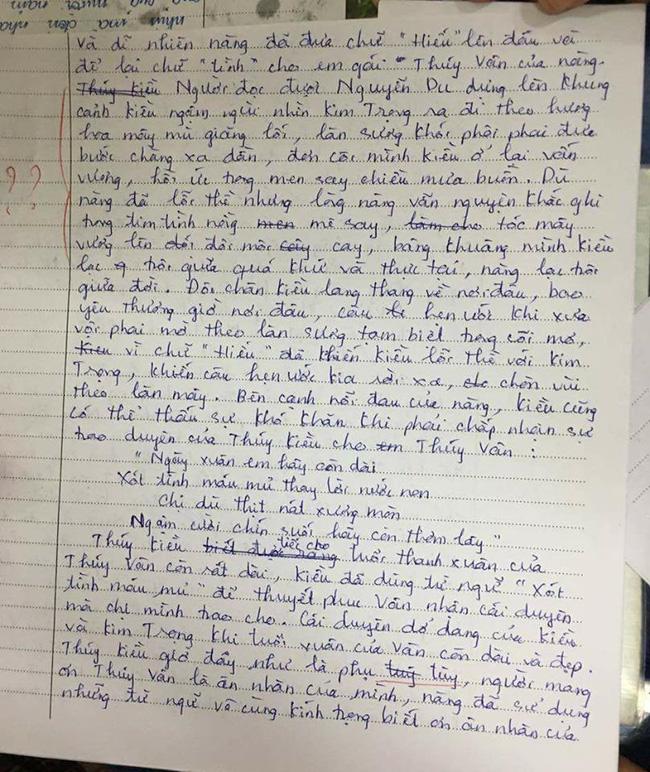 và dĩ nhiên nàng đã đưa chữ "Hiếu" lên đầu và
để lại chữ "tình" cho em gái Thúy Vân của nàng.
Thúy Kiều Người đọc được Nguyễn Du dựng lên khung
cảnh Kiều ngậm ngùi nhìn Kim Trọng ra đi theo hương
hoa mây mù giăng lối, làn sương khói phôi phai đưa
bước chàng xa dần, đơn côi mình Kiều ở lại vấn
vương, hồi ức trong men say chiều mưa buồn. Dù
nàng đã lỗi thề nhưng lòng nàng vẫn nguyên khắc ghi
trong tim tình nồng men mê say, làm cho tóc mây
vương lên đôi đôi môi cay cay, bâng khuâng mình Kiều
lạc trôi giữa quá khứ và thực tại, nàng lạc trôi
giữa đời. Đôi chân Kiều lang thang về nơi đâu, bao
yêu thương giờ nơi đâu, câu thơ hẹn ước khi xưa
vội phai mờ theo làn sương tan biến trong cõi mơ,
Kiều vì chữ "Hiếu" đã khiến Kiều lỗi thề với Kim
Trọng, khiến câu hẹn ước kia rời xa, chôn vùi
theo làn mây. Bên cạnh nỗi đau của nàng, Kiều cũng
có thể thấu sự khó khăn khi phải chấp nhận sự
trao duyên của Thúy Kiều cho em Thúy Vân:
"Ngày xuân em hãy còn dài
Xót tình máu mủ thay lời nước non
Chị dù thịt nát xương mòn
Ngậm cười chín suối hãy còn thơm lây"
Thúy Kiều biết được rằng tiếc cho tuổi thanh xuân của
Thúy Vân còn rất dài, Kiều đã dùng từ ngữ "Xót
tình máu mủ" để thuyết phục Vân nhận cái duyên
mà chị mình trao cho. Cái duyên dở dang của Kiều
và Kim Trọng khi tuổi xuân của Vân còn dài và đẹp.
Thúy Kiều giờ đây như là phụ tuỳ tùy, người mang
ơn Thúy Vân là ân nhân của mình, nàng đã sử dụng
những từ ngữ vô cùng kính trọng biết ơn ân nhân của